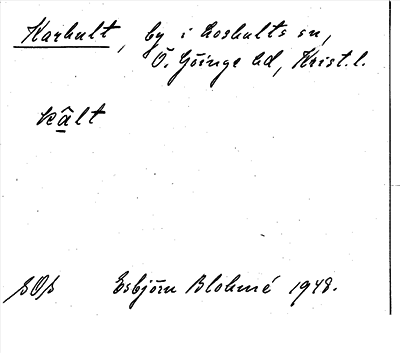 Karhult, by i Loshults sn,
Ö. Göinge hd, Krist. l.
kâ̠lt
SOS Esbjörn Blohmé 1948.